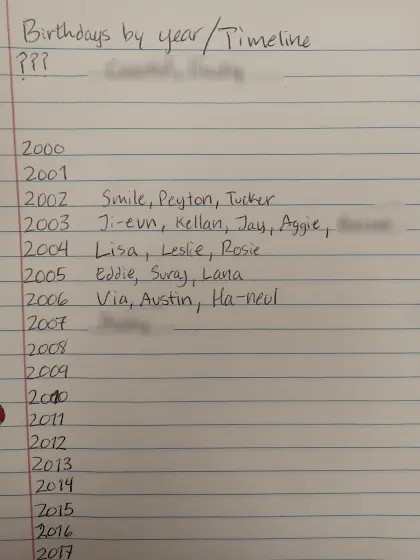 Birthdays by year/Timeline
???
2000
2001
2002 Smile, Peyton, Tucker
2003 Ji-eun, Kellan, Jay, Aggie,
2004 Lisa, Leslie, Rosie
2005 Eddie, Suray, Lana
2006 Via, Austin, Ha-neul
2007
2008
2009
2010
2011
2012
2013
2014
2015
2016
2017